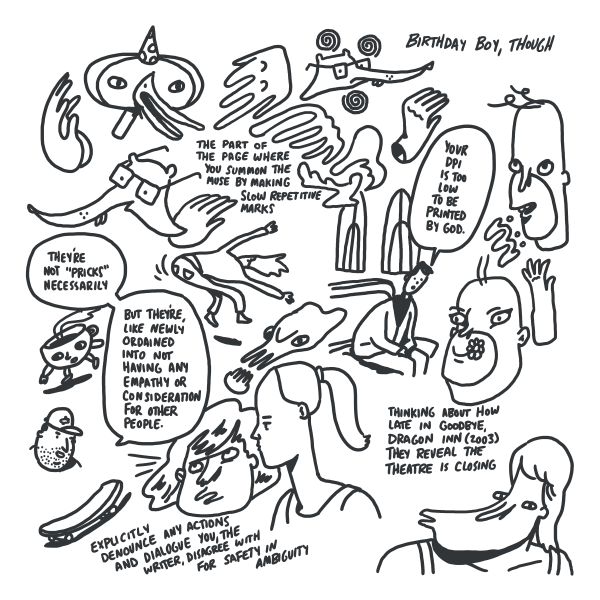 BIRTHDAY BOY, THOUGH
THE PART OF
THE PAGE WHERE
YOU SUMMON THE
MUSE BY MAKING
SLOW REPETITIVE
MARKS
YOUR
DPI
IS TOO
LOW
TO BE
PRINTED
BY GOD.
THEY'RE
NOT "PRICKS"
NECESSARILY
BUT THEY'RE,
LIKE NEWLY
ORDAINED
INTO NOT
HAVING ANY
EMPATHY OR
CONSIDERATION
FOR OTHER
PEOPLE.
THINKING ABOUT HOW
LATE IN GOODBYE,
DRAGON INN (2003)
THEY REVEAL THE
THEATRE IS CLOSING
EXPLICITLY
DENOUNCE ANY ACTIONS
AND DIALOGUE YOU, THE
WRITER, DISAGREE WITH
FOR SAFETY IN
AMBIGUITY